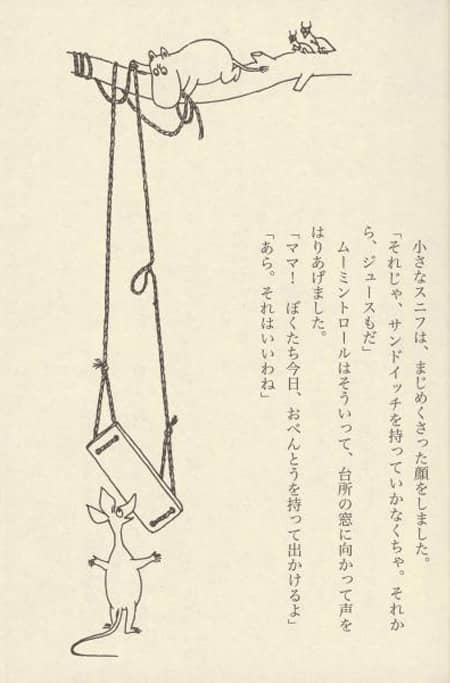 小さなスニフは、まじめくさった顔をしました。
「それじゃ、サンドイッチを持っていかなくちゃ。それか
ら、ジュースもだ」
ムーミントロールはそういって、台所の窓に向かって声を
はりあげました。
「ママ！　ぼくたち今日、おべんとうを持って出かけるよ」
「あら。それはいいわね」